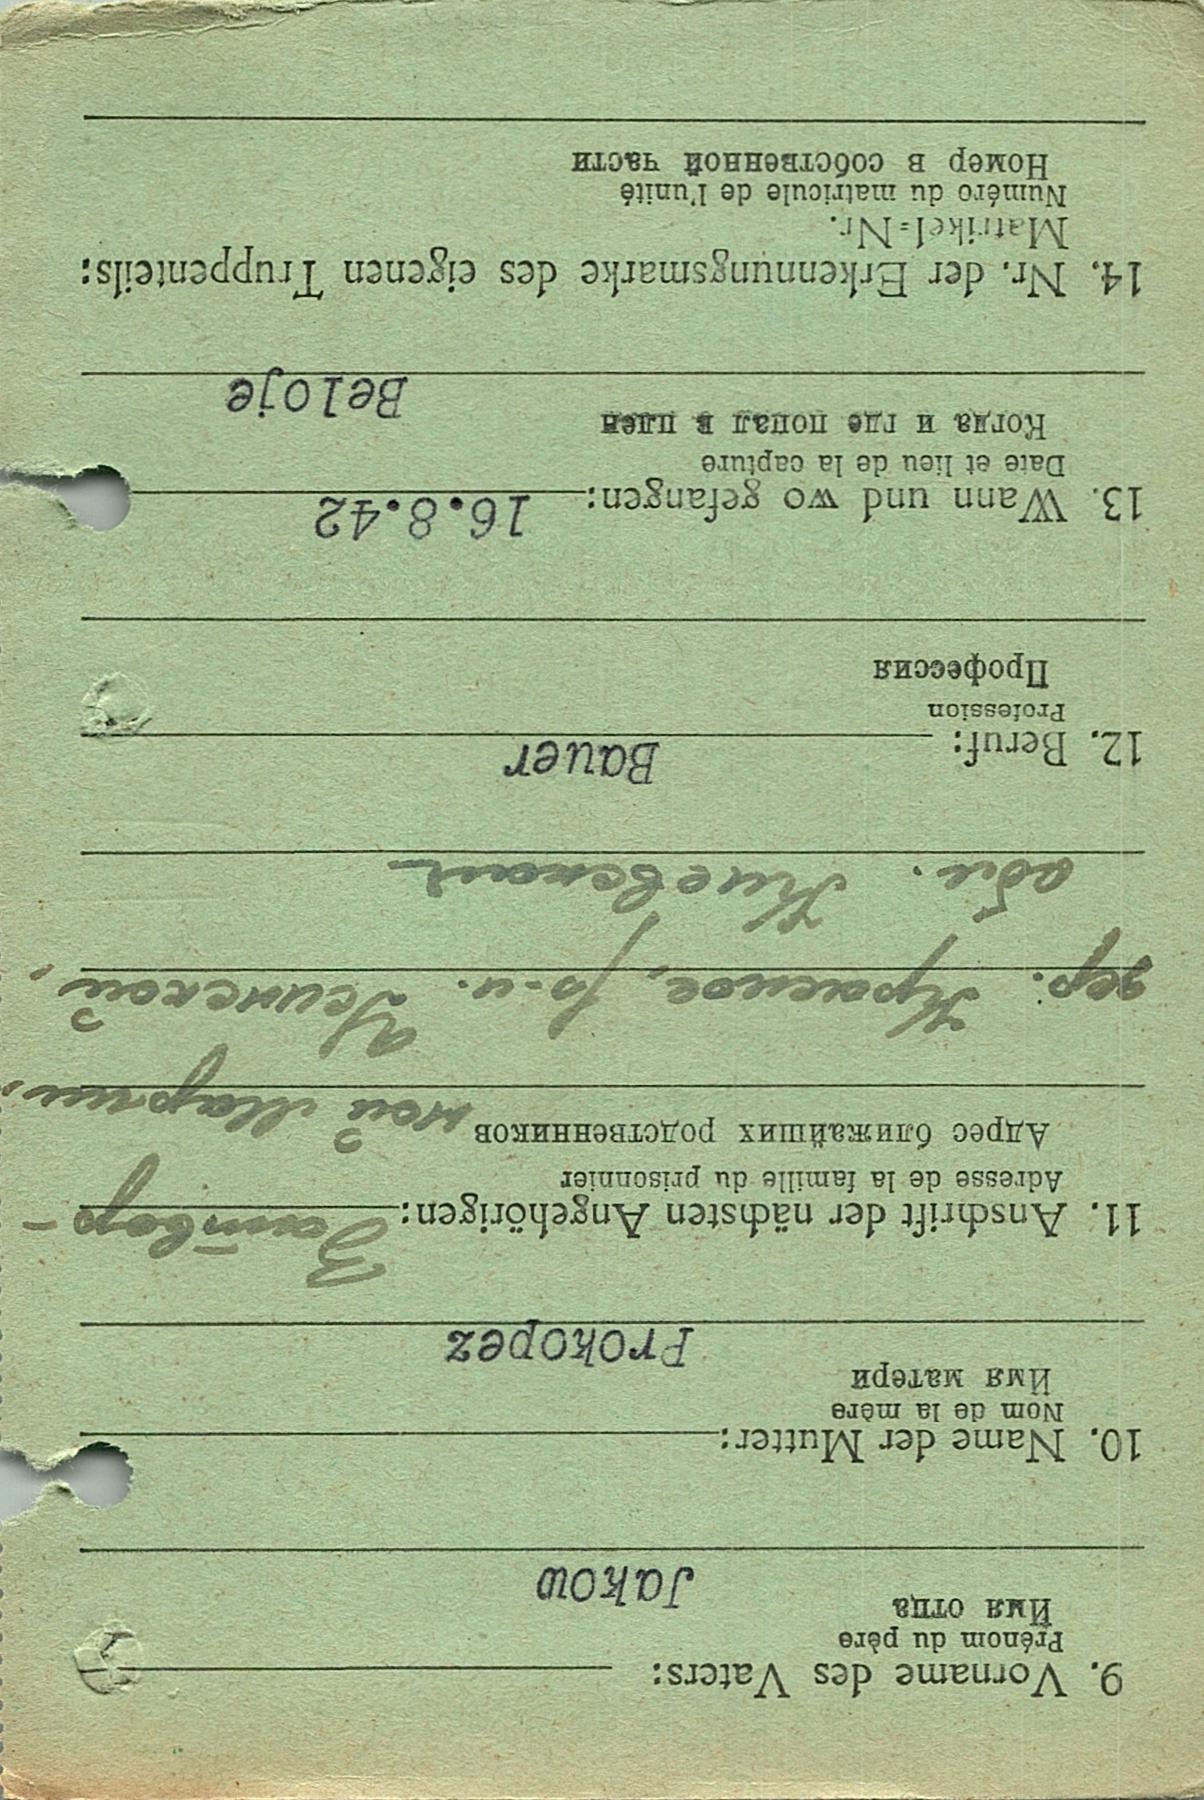 9. Vorname des Vaters:
Prénom du père
Имя отца
Jakow
10. Name der Mutter:
Nom de la mère
Имя матери
Prokopez
11. Anschrift der nächsten Angehörigen:
Adresse de la famille du prisonnier
Адрес ближайших родственников
ной Марии,
дер. Красное, р-н.
обл. Киевская
12. Beruf: Bauer
Profession
Профессия
13. Wann und wo gefangen: 16.8.42
Date et lieu de la capture
Когда и где попал в плен
Beloje
14. Nr. der Erkennungsmarke des eigenen Truppenteils:
Matrikel=Nr.
Numéro du matricule de l'unité
Номер в собственной части